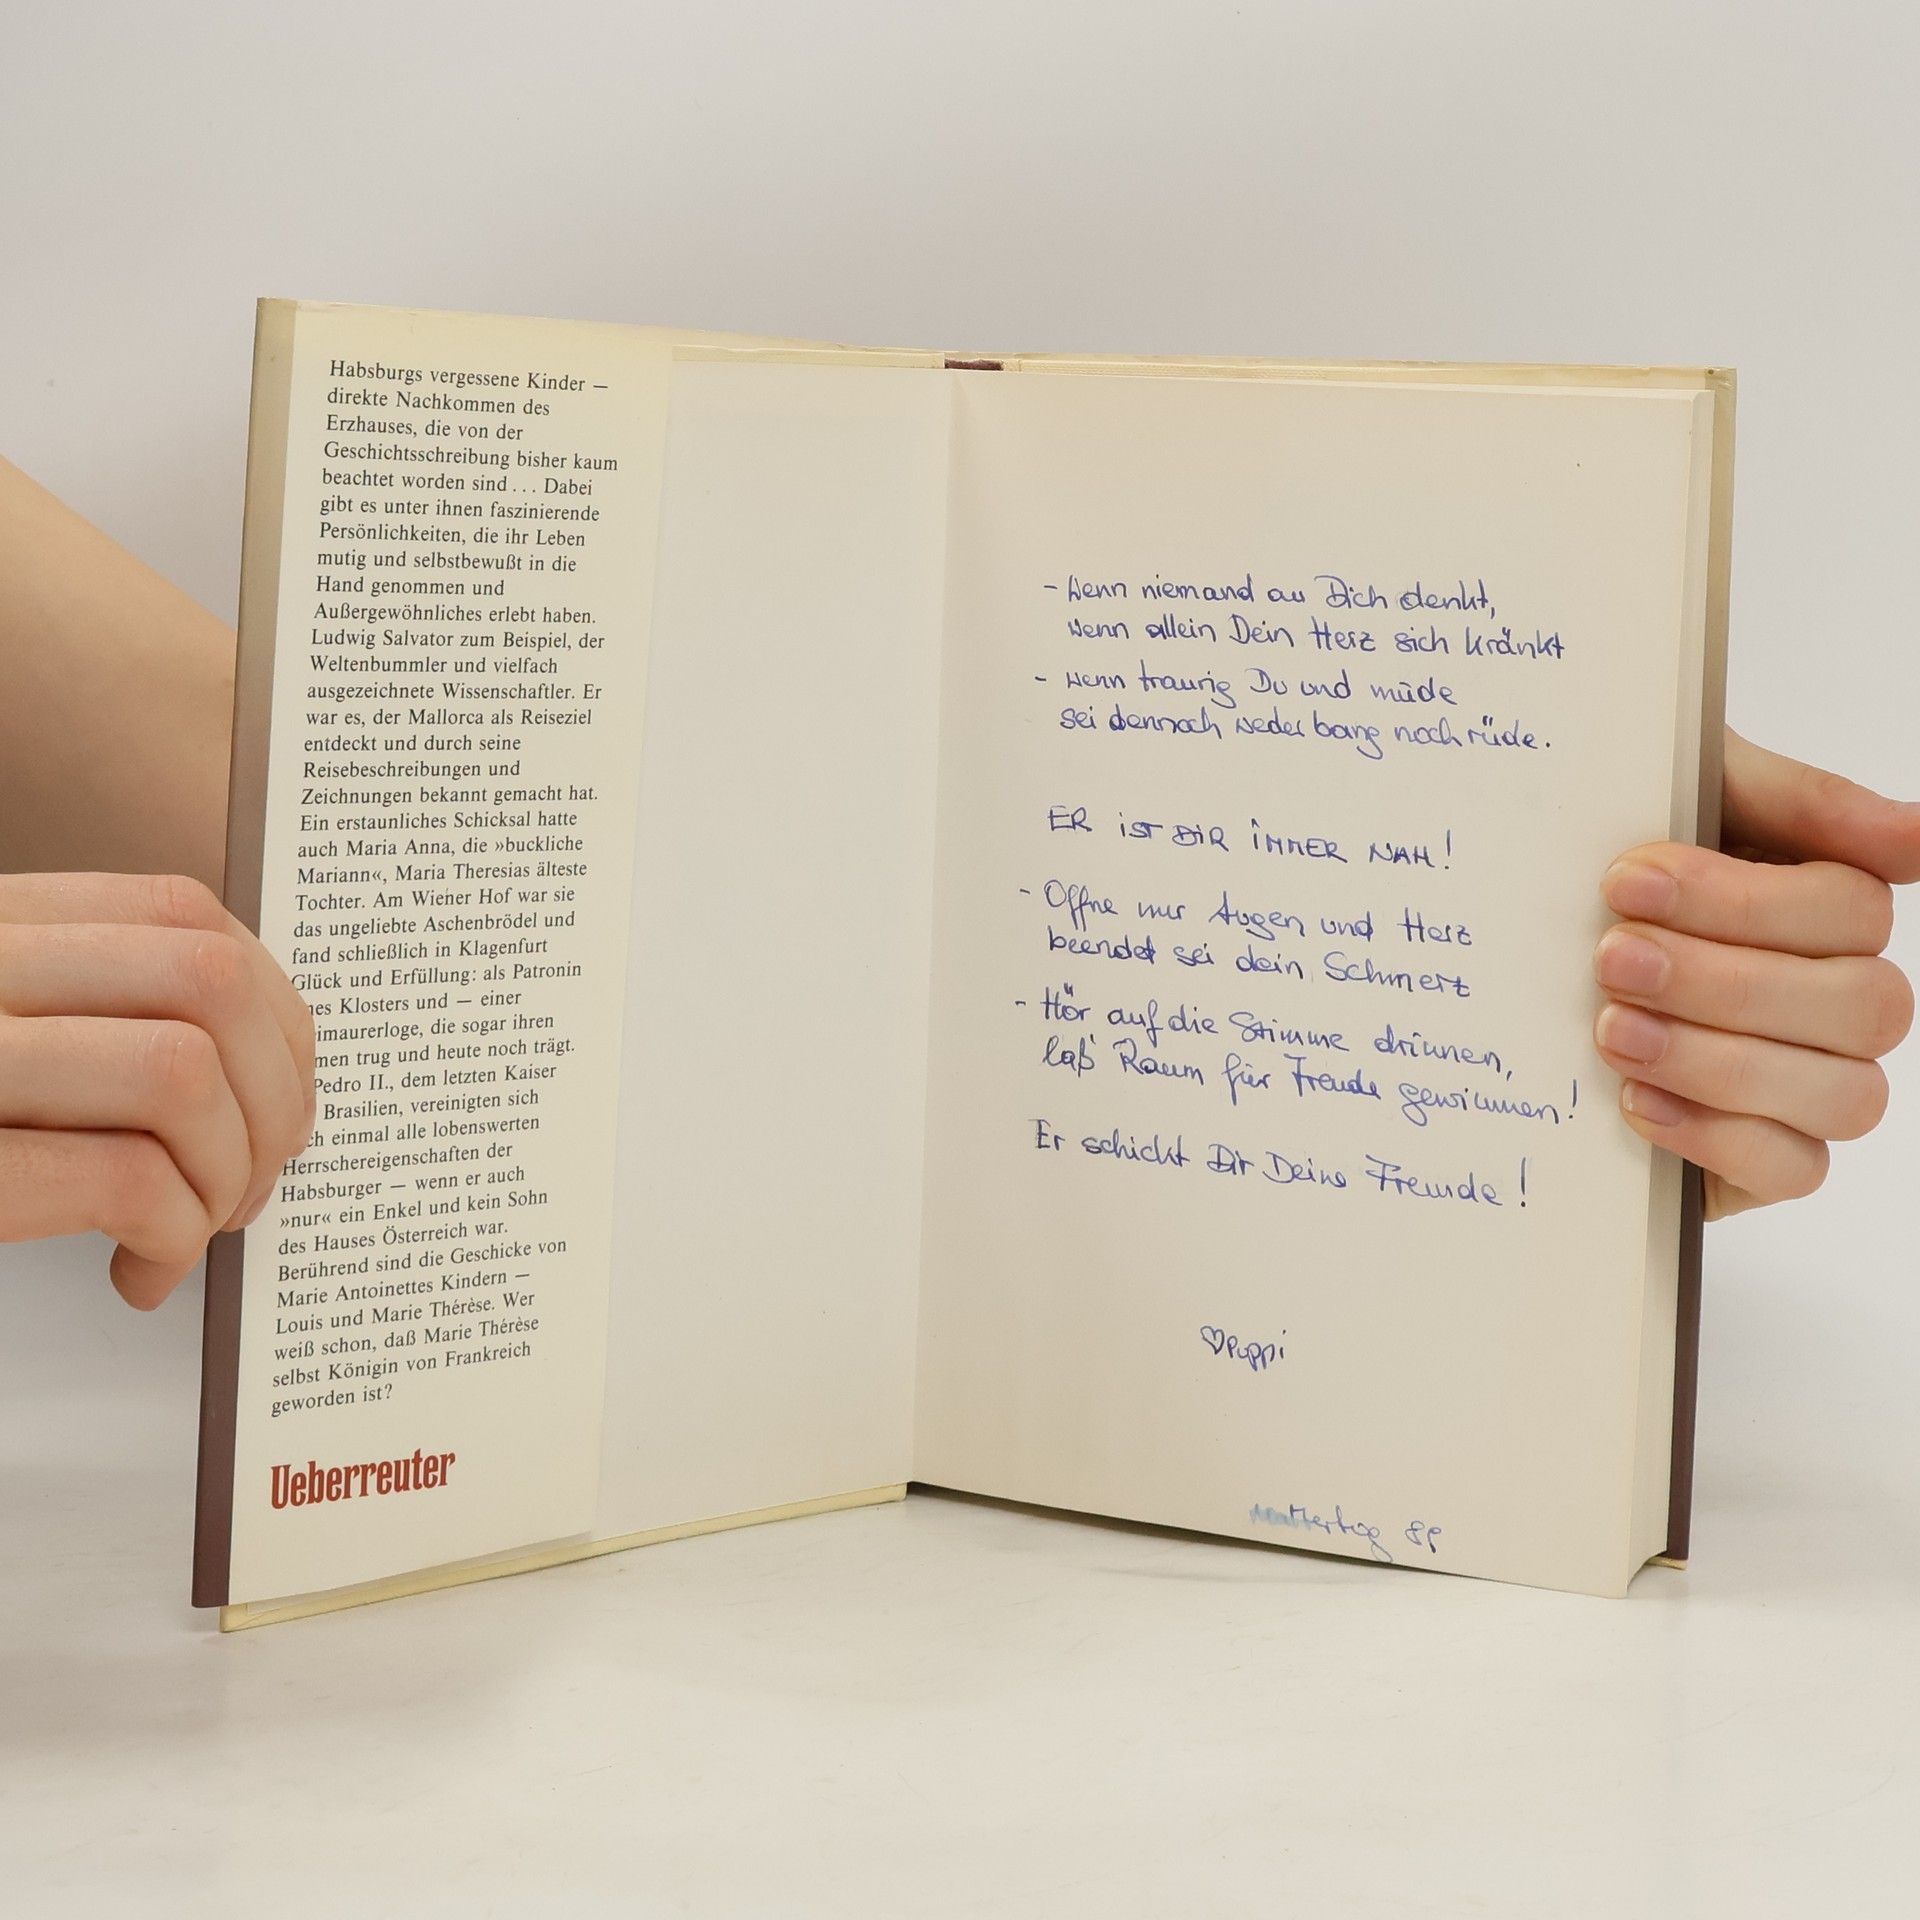 Habsburgs vergessene Kinder —
direkte Nachkommen des
Erzhauses, die von der
Geschichtsschreibung bisher kaum
beachtet worden sind . . . Dabei
gibt es unter ihnen faszinierende
Persönlichkeiten, die ihr Leben
mutig und selbstbewußt in die
Hand genommen und
Außergewöhnliches erlebt haben.
Ludwig Salvator zum Beispiel, der
Weltenbummler und vielfach
ausgezeichnete Wissenschaftler. Er
war es, der Mallorca als Reiseziel
entdeckt und durch seine
Reisebeschreibungen und
Zeichnungen bekannt gemacht hat.
Ein erstaunliches Schicksal hatte
auch Maria Anna, die »bucklige
Mariann«, Maria Theresias älteste
Tochter. Am Wiener Hof war sie
das ungeliebte Aschenbrödel und
fand schließlich in Klagenfurt
Glück und Erfüllung: als Patronin
nes Klosters und — einer
imaurerloge, die sogar ihren
men trug und heute noch trägt.
Pedro II., dem letzten Kaiser
Brasilien, vereinigten sich
ch einmal alle lobenswerten
Herrschereigenschaften der
Habsburger — wenn er auch
»nur« ein Enkel und kein Sohn
des Hauses Österreich war.
Berührend sind die Geschicke von
Marie Antoinettes Kindern —
Louis und Marie Thérèse. Wer
weiß schon, daß Marie Thérèse
selbst Königin von Frankreich
geworden ist?
Ueberreuter
- Wenn niemand an Dich denkt,
wenn allein Dein Herz sich kränkt
- wenn traurig Du und müde
sei dennoch weder bang noch rüde.
ER IST DIR IMMER NAH!
- Öffne nur Augen und Herz
beendet sei dein Schmerz
- Hör auf die Stimme drinnen,
laß Raum für Freude gewinnen!
Er schickt Dir Deine Freunde!
♡Puppi
89